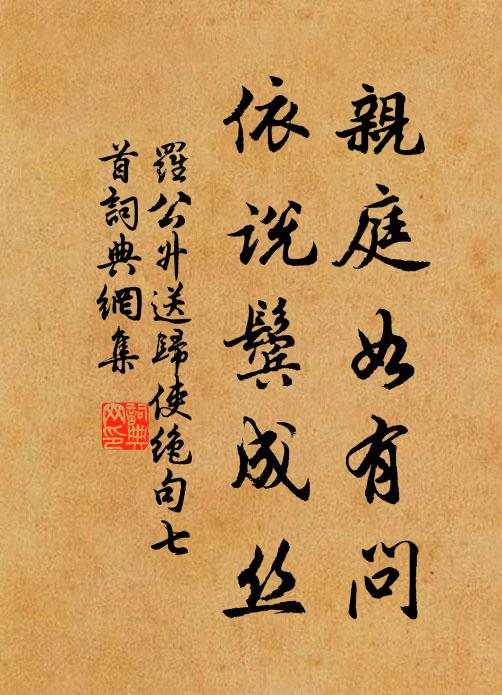 親庭如有問
依説鬢成丝
羅公升送歸使绝句七
首詞典網集
詞典
网印